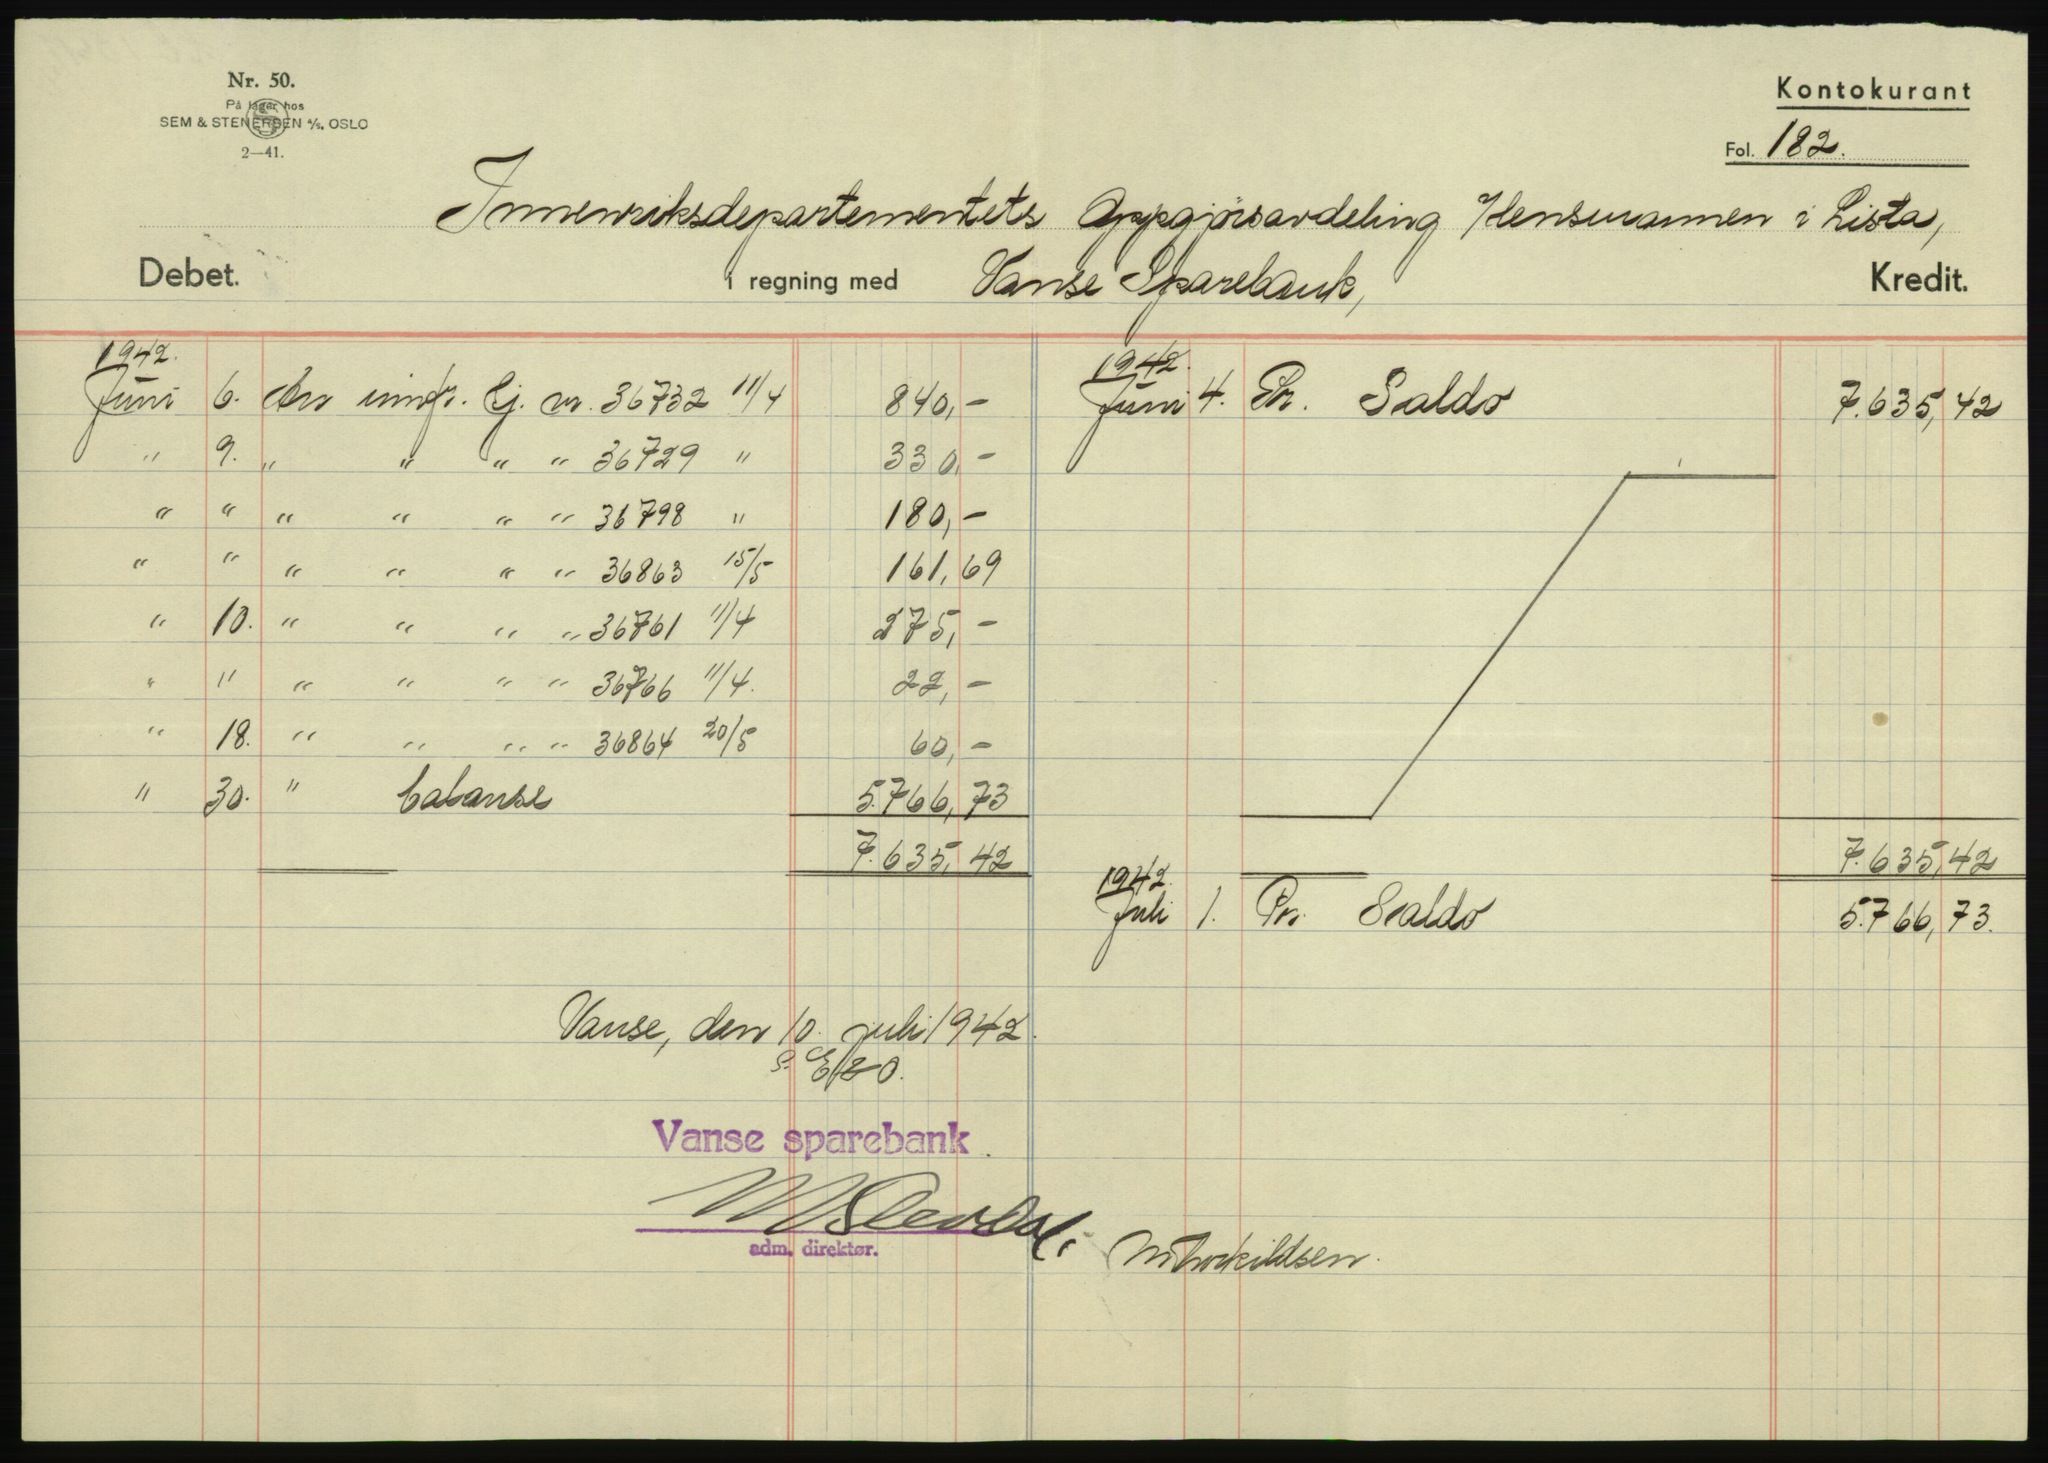 Nr. 50.
På lager hos
SEM & STENERSEN A/S, OSLO
2—41.
Kontokurant
Fol. 182.
Innenriksdepartementets Oppgjørsavdeling / Lensmannen i Lista,
Debet. i regning med Vanse Sparebank, Kredit.
1942.
Juni 6. An innfr. Gj. nr. 36732 11/4 840,-
" 9. " " " " 36729 " 330,-
" " " " " " 36798 " 180,-
" " " " " " 36863 15/5 161,69
" 10. " " " " 36761 11/4 275,-
" " " " " " 36766 11/4. 22,-
" 18. " " " " 36864 20/5 60,-
" 30. " balanse 5.766,73
7.635,42
1942.
Juni 4. Pr. Saldo 7.635,42
7.635,42
1942.
Juli 1. Pr. Saldo 5.766,73.
Vanse, den 10. juli 1942.
Vanse sparebank
adm. direktør.